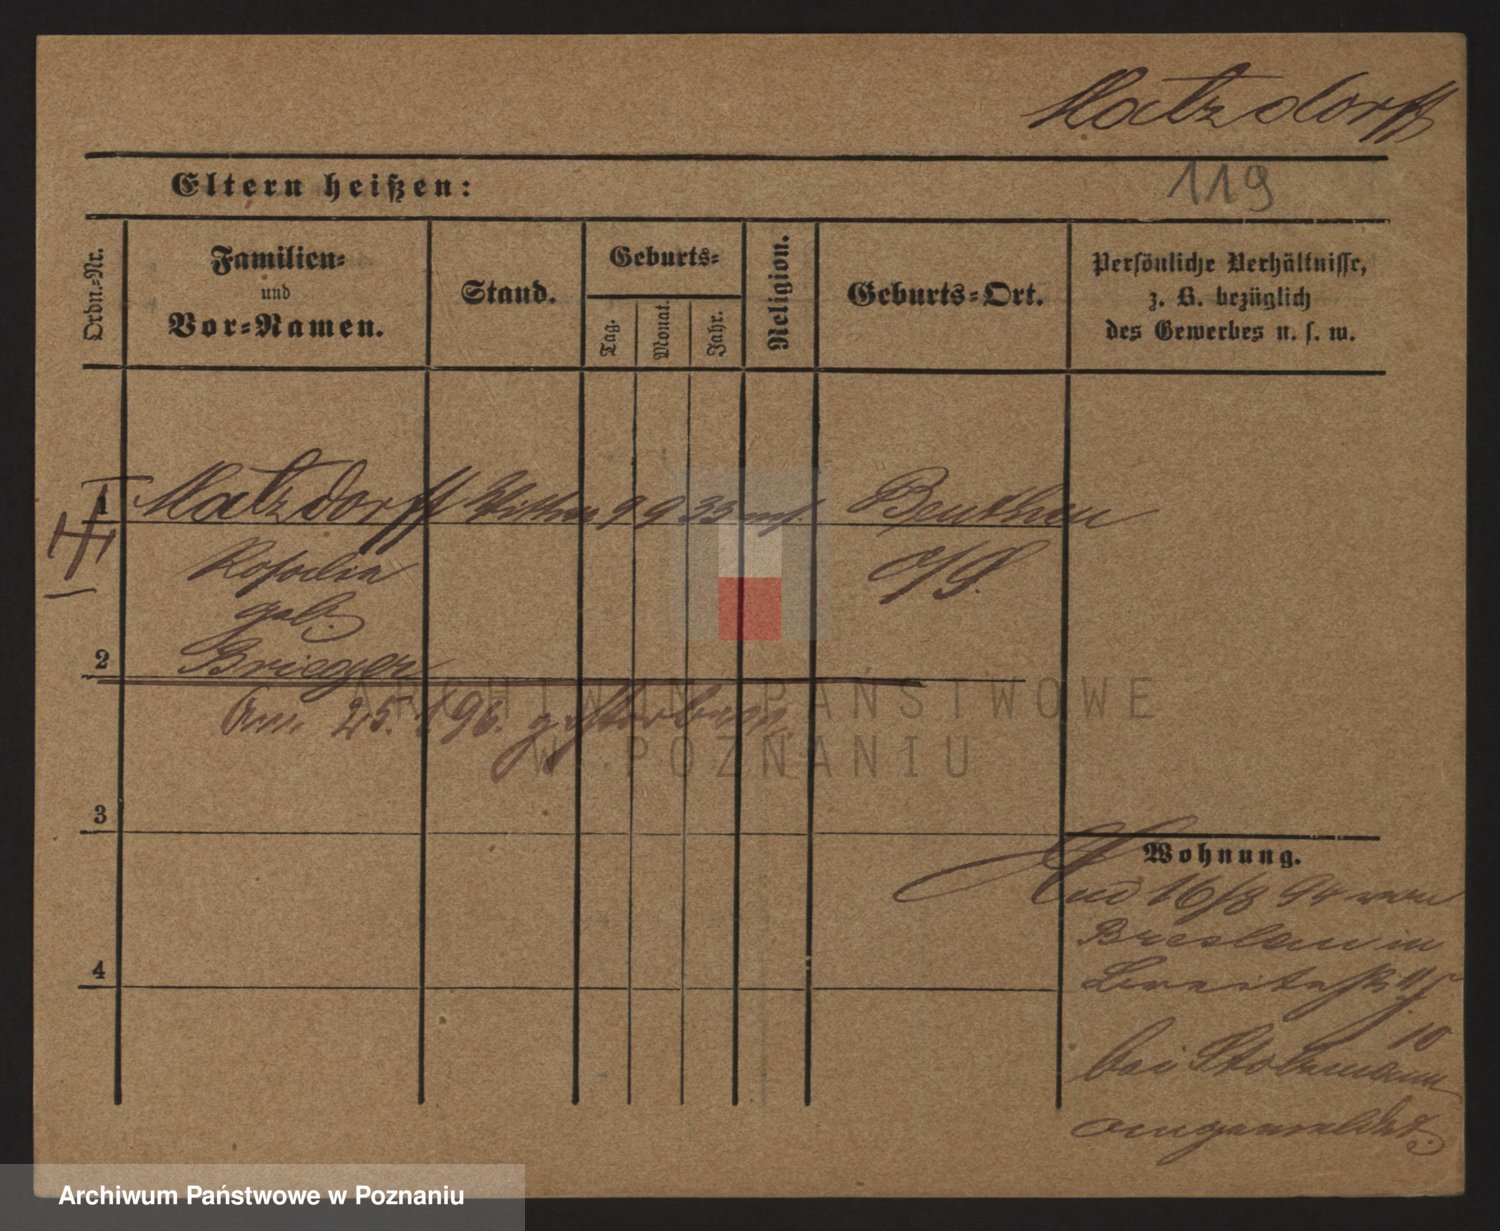 Matzdorff
119
Eltern heißen:
Ordn.-Nr.
Familien-
und
Vor-Namen.
Stand.
Geburts-
Tag.
Monat.
Jahr.
Religion.
Geburts-Ort.
Persönliche Verhältnisse,
z. B. bezüglich
des Gewerbes u. s. w.
1 Matzdorff Wittwe 9 9 33 mos. Beuthen
Rosalia O/S.
geb.
2 Brieger
Am 25. 1 96. gestorben.
ARCHIWUM PAŃSTWOWE
W POZNANIU
3
Wohnung.
16/8 94 von
Breslau in
Breitestr
10
bei
angemeldet.
4
Archiwum Państwowe w Poznaniu